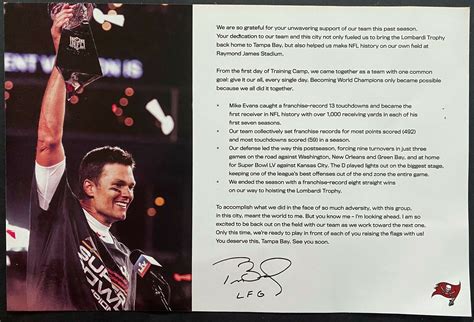 We are so grateful for your unwavering support of our team this past season.
Your dedication to our team and this city not only fueled us to bring the Lombardi Trophy
back home to Tampa Bay, but also helped us make NFL history on our own field at
Raymond James Stadium.
From the first day of Training Camp, we came together as a team with one common
goal: give it our all, every single day. Becoming World Champions only became possible
because we all did it together.
• Mike Evans caught a franchise-record 13 touchdowns and became the
first receiver in NFL history with over 1,000 receiving yards in each of his
first seven seasons.
• Our team collectively set franchise records for most points scored (492)
and most touchdowns scored (59) in a season.
• Our defense led the way this postseason, forcing nine turnovers in just three
games on the road against Washington, New Orleans and Green Bay, and at home
for Super Bowl LV against Kansas City. The D played lights out on the biggest stage,
keeping one of the league's best offenses out of the end zone the entire game.
• We ended the season with a franchise-record eight straight wins
on our way to hoisting the Lombardi Trophy.
To accomplish what we did in the face of so much adversity, with this group,
in this city, meant the world to me. But you know me – I'm looking ahead. I am so
excited to be back out on the field with our team as we work toward the next one.
Only this time, we're ready to play in front of each of you raising the flags with us!
You deserve this, Tampa Bay. See you soon.
LFG
NFL
SUPER
BOWL